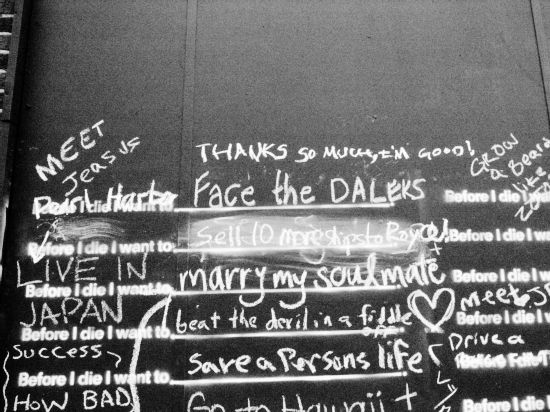 MEET
Jeasus
THANKS SO MUCH, I'M GOOD!
GROW
a Beard
like
Pearl Harbor
Before I die I want to Face the DALEKS
Before I die I
Before I die I want to sell 10 more ships to
Before I die I want
LIVE IN
Before I die I want to marry my soulmate
Before I die I
JAPAN
Before I die I want to beat the devil in a fiddle
Meet
Before I die I w
Success
Before I die I want to save a Persons life
Drive a
HOW BAD
Go to Hawaii +
Before I die I